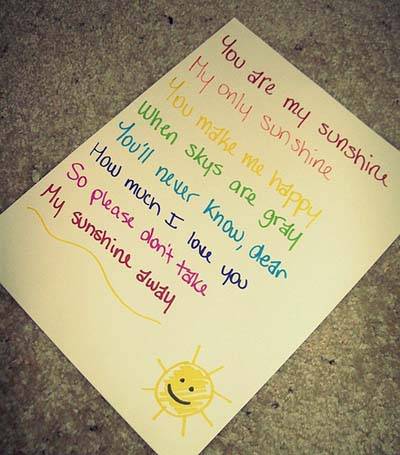 You are my sunshine
My only sunshine
You make me happy
When skys are gray
You'll never know, dear
How much I love you
So please don't take
My sunshine away